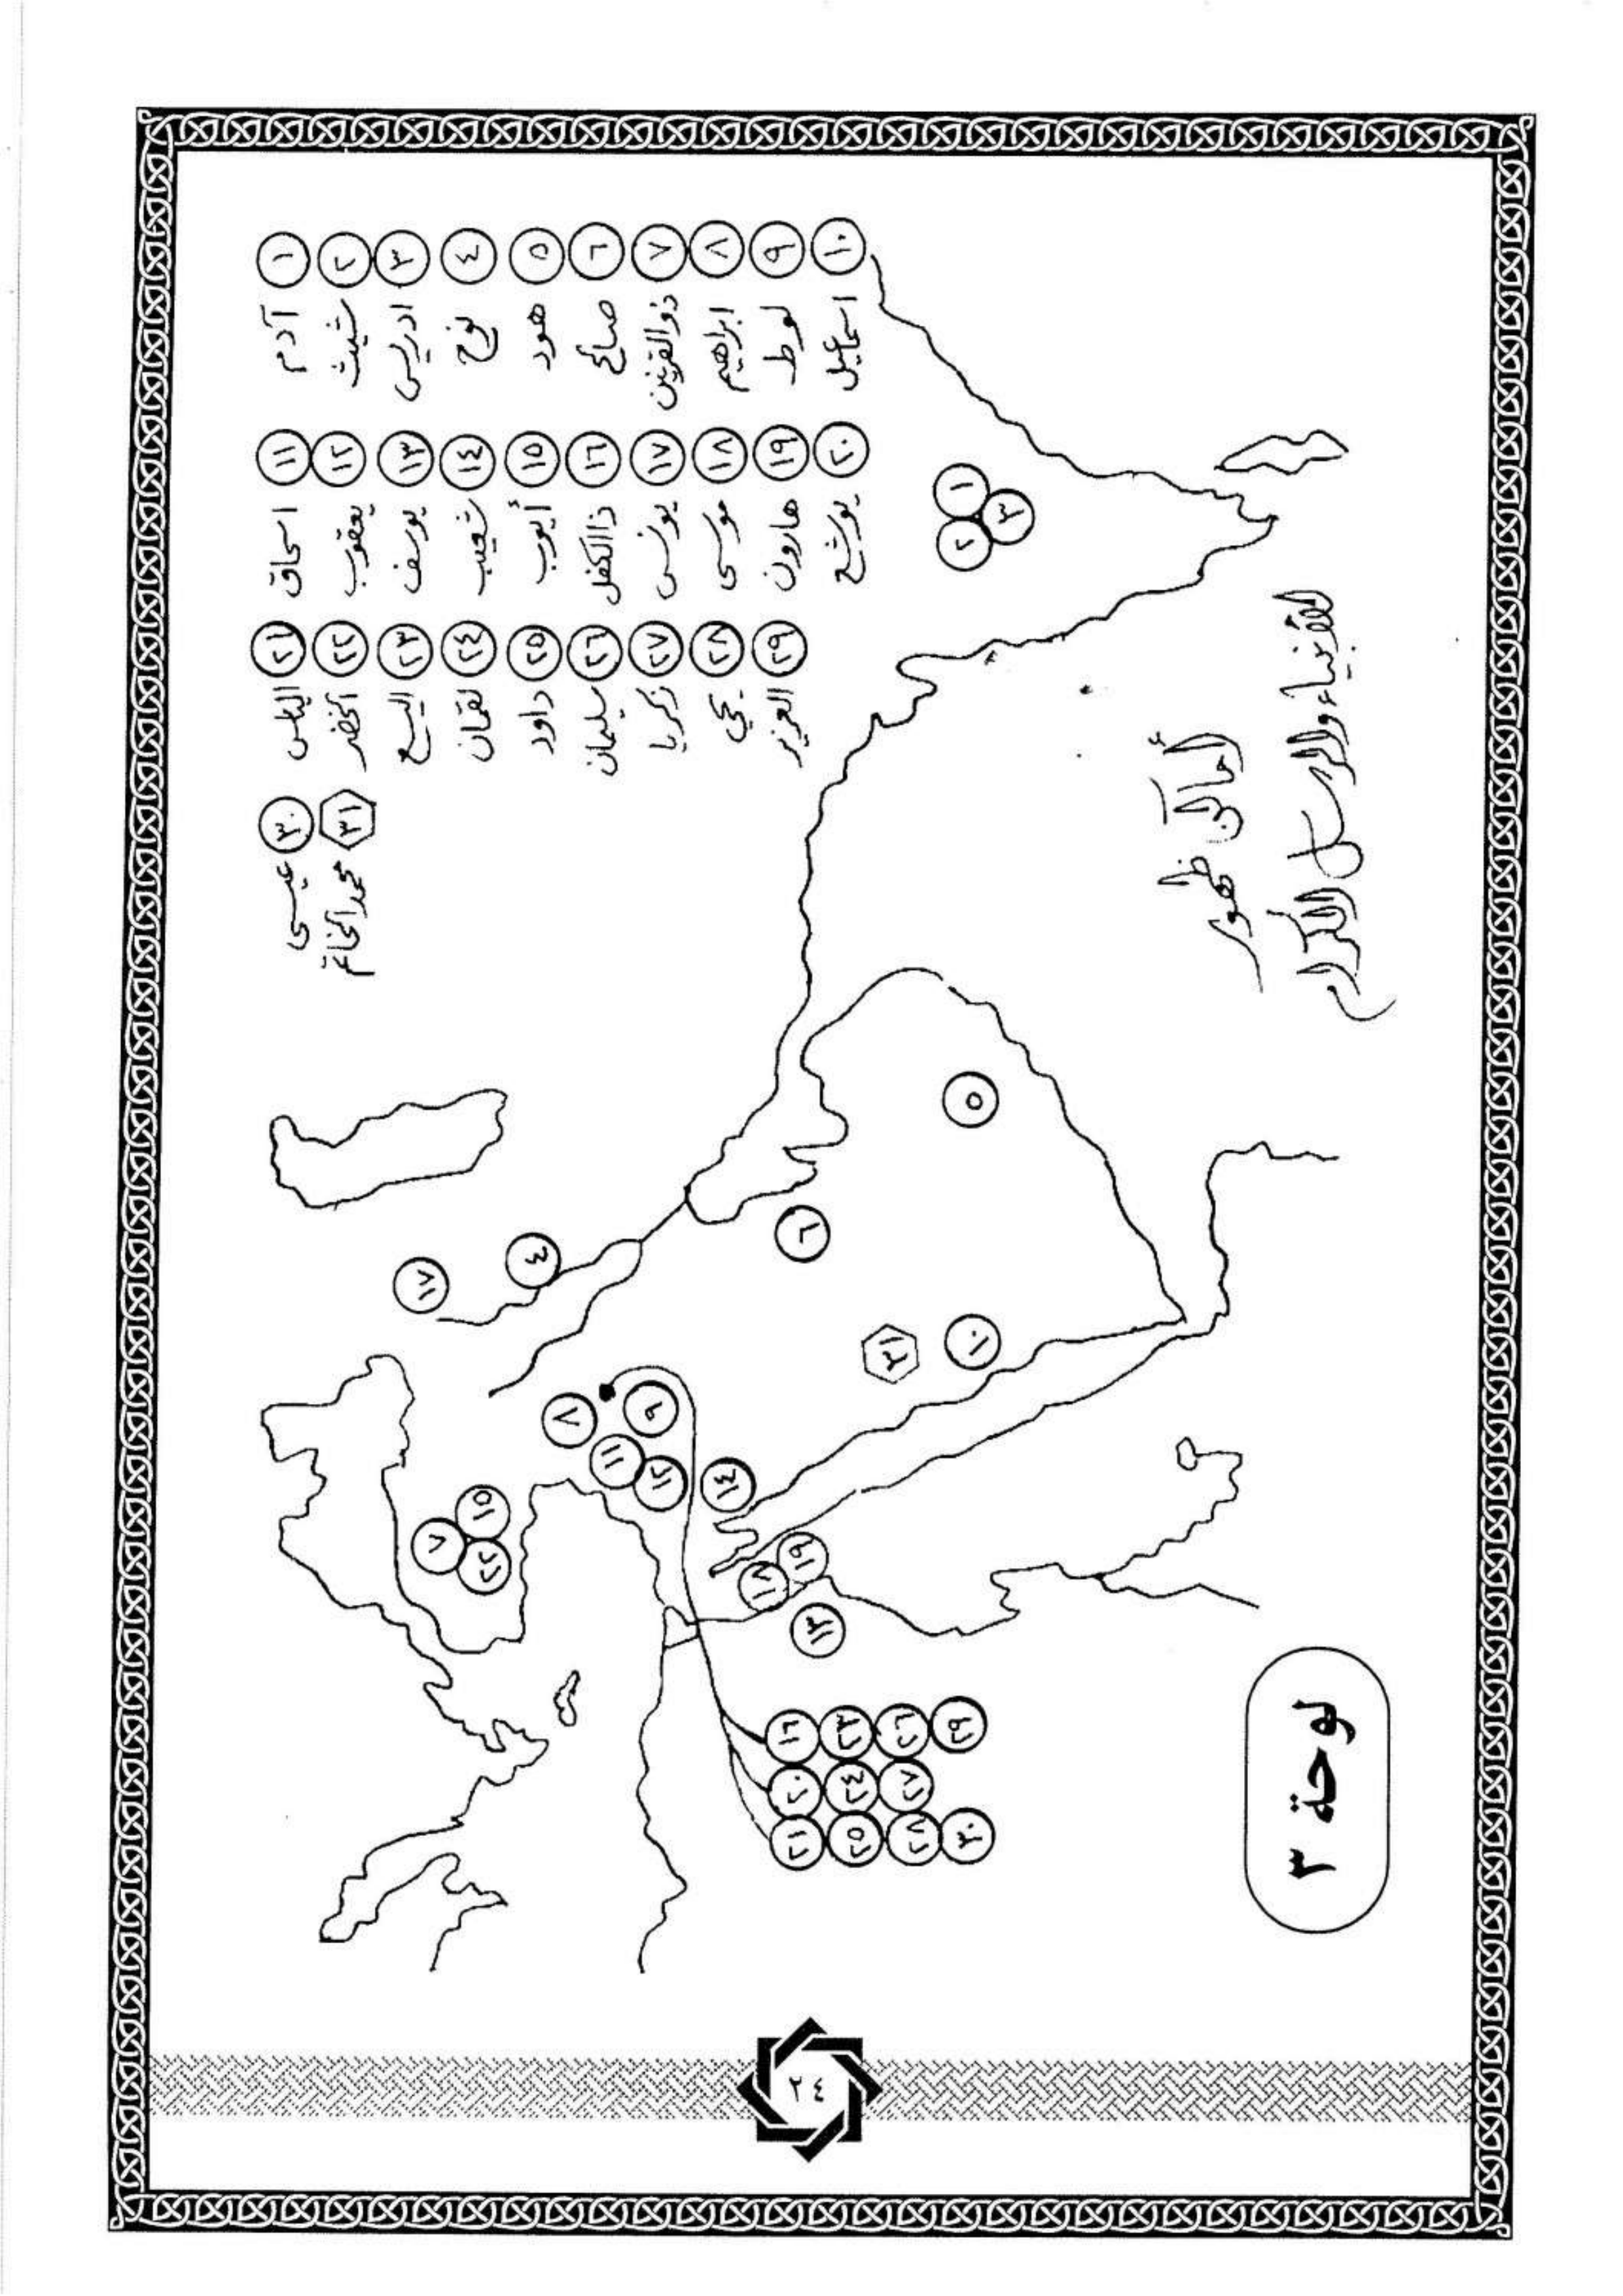 ١ آدم
٢ شيث
٣ ادريس
٤ نوح
٥ هود
٦ صالح
٧ ذو القرنين
٨ ابراهيم
٩ لوط
١٠ اسماعيل
١١ اسحاق
١٢ يعقوب
١٣ يوسف
١٤ شعيب
١٥ أيوب
١٦ ذا الكفل
١٧ يونس
١٨ موسى
١٩ هارون
٢٠ يوشع
٢١ الياس
٢٢ الخضر
٢٣ اليسع
٢٤ لقمان
٢٥ داود
٢٦ سليمان
٢٧ زكريا
٢٨ يحيى
٢٩ العزير
٣٠ عيسى
٣١ محمد الخاتم
١
٢
٣
٥
٦
٤
١٧
١٠
٣١
٨
٩
١١
١٢
١٤
٧
١٥
٢٢
١٨
١٩
١٣
١٦ ٢٣ ٢٦ ٢٩
٢٠ ٢٤ ٢٧
٢١ ٢٥ ٢٨ ٣٠
أماكن ظهور
الأنبياء والرسل الكرام
لوحة ٣
٢٤